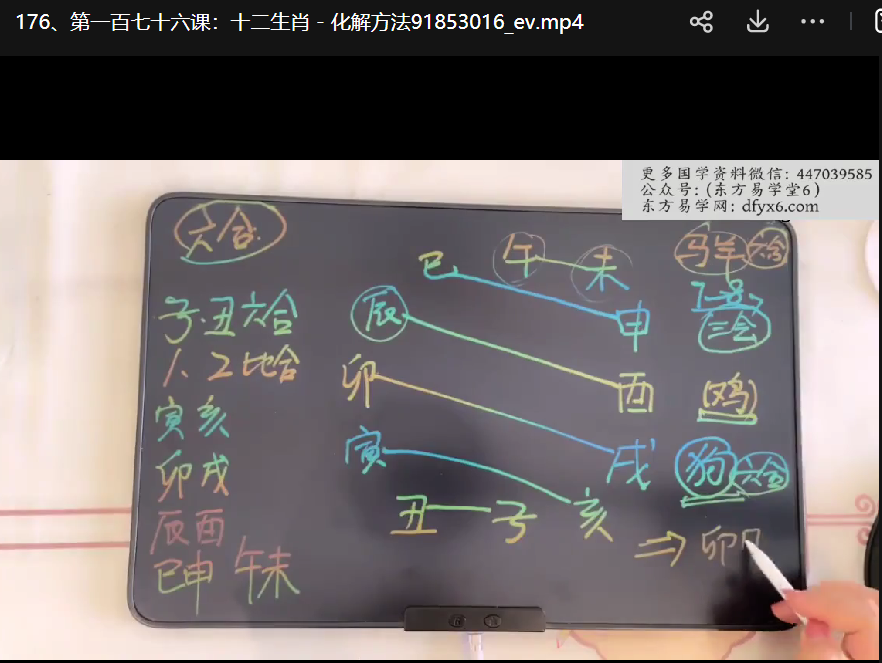 176、第一百七十六课：十二生肖 - 化解方法91853016_ev.mp4
更多国学资料微信: 447039585
公众号:(东方易学堂6)
东方易学网: dfyx6.com
六合
子.丑六合
1、2比合
寅亥
卯戌
辰酉
巳申 午未
巳 午 未
辰 申
卯 酉
寅 戌
丑 子 亥
马羊六合
三会
鸡
狗六合
⇒ 卯